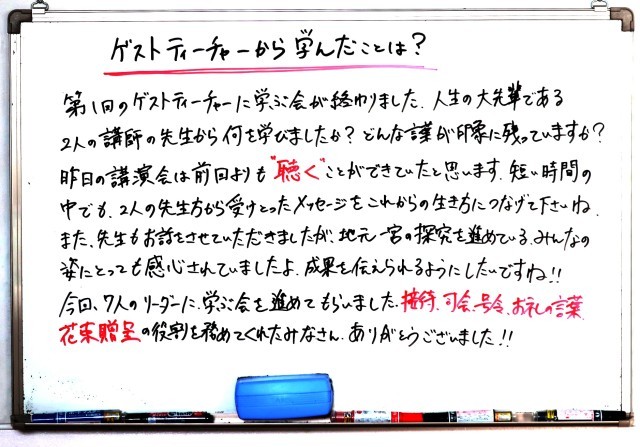 ゲストティーチャーから学んだことは?
第1回のゲストティーチャーに学ぶ会が終わりました。人生の大先輩である
2人の講師の先生から何を学びましたか?どんな言葉が印象に残っていますか?
昨日の講演会は前回よりも"聴く"ことができていたと思います。短い時間の
中でも、2人の先生方から受けとったメッセージをこれからの生き方につなげて下さいね。
また、先生もお話をさせていただきましたが、地元一宮の探究を進めている、みんなの
姿にとっても感心されていましたよ。成果を伝えられるようにしたいですね!!
今回、7人のリーダーに、学ぶ会を進めてもらいました。接待、司会、号令、お礼の言葉、
花束贈呈の役割を務めてくれたみなさん、ありがとうございました!!